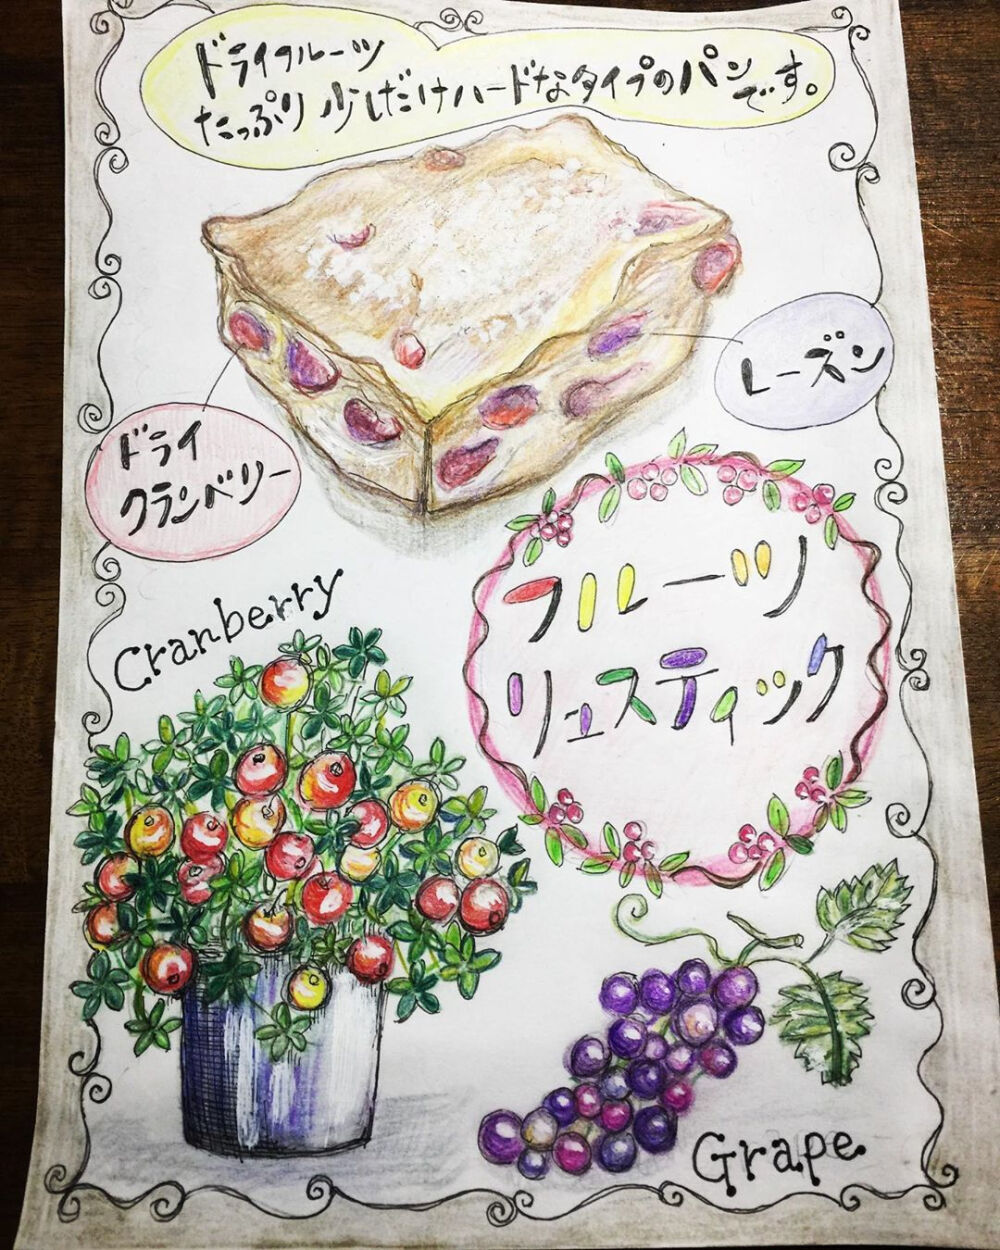 ドライフルーツ
たっぷり 少しだけハードなタイプのパン
です。
レーズン
ドライ
クランベリー
フルーツ
リュスティック
Cranberry
Grape